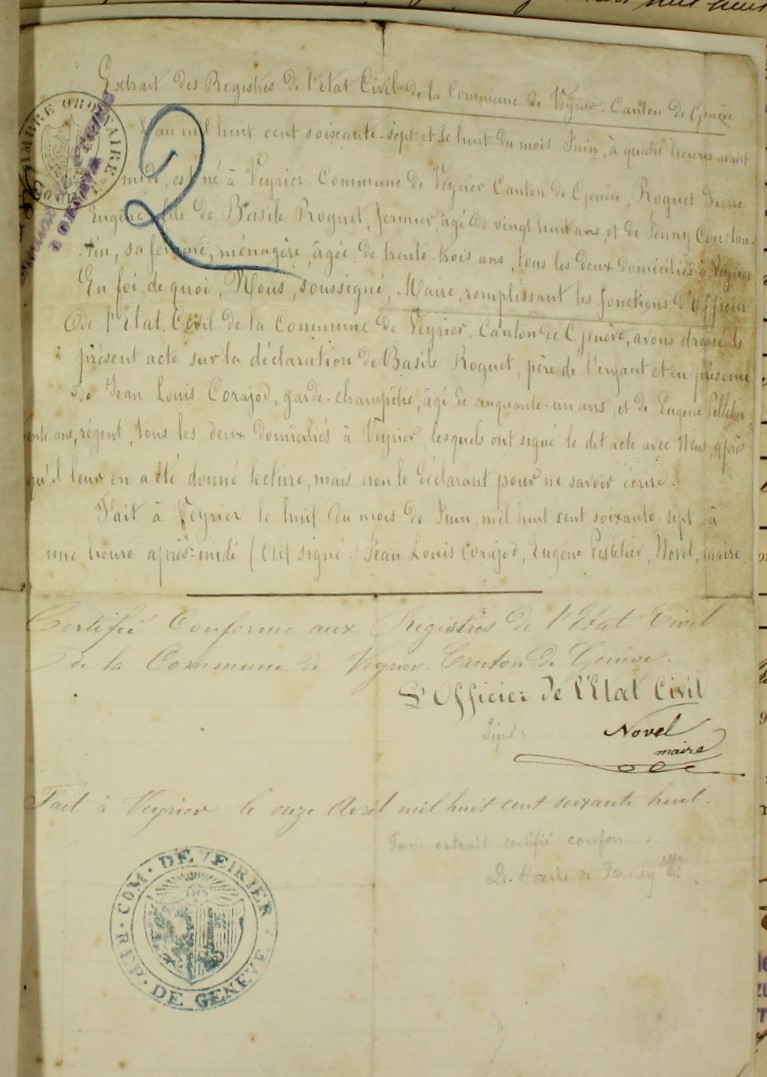 Extrait des Registres de l'Etat Civil de la Commune de Veyrier. Canton de Genève
L'an mil huit cent soixante-sept et le huit du mois Juin, à quatre heures avant
midi, est né à Veyrier Commune de Veyrier Canton de Genève, Roguet Pierre
Eugène, fils de Basile Roguet, fermier âgé de vingt huit ans, et de Jenny Constan-
tin, sa femme, ménagère, âgée de trente-trois ans, tous les deux domiciliés à Veyrier
En foi de quoi, Nous, soussigné, Maire, remplissant les fonctions d'Officier
de l'Etat Civil de la Commune de Veyrier. Canton de Genève, avons dressé le
présent acte sur la déclaration de Basile Roguet, père de l'enfant et en présence
de Jean Louis Corajod, garde-champêtre, âgé de cinquante-un ans, et de Eugène Pelletier
ans, régent, tous les deux domiciliés à Veyrier, lesquels ont signé le dit acte avec Nous, après
qu'il leur en a été donné lecture, mais non le déclarant pour ne savoir écrire.
Fait à Veyrier le huit du mois de Juin, mil huit cent soixante-sept à
une heure après-midi ( signé.) Jean Louis Corajod, Eugène Pelletier, Novel, maire
Certifié Conforme aux Registres de l'Etat Civil
de la Commune de Veyrier. Canton de Genève.
L'Officier de l'Etat Civil
Signé:
Novel
maire
Fait à Veyrier le onze Avril mil huit cent soixante huit.
Pour extrait certifié conforme.
Le Maire de Ferney
COM. DE VEIRIER
REP. DE GENEVE
TIMBRE ORDINAIRE
2